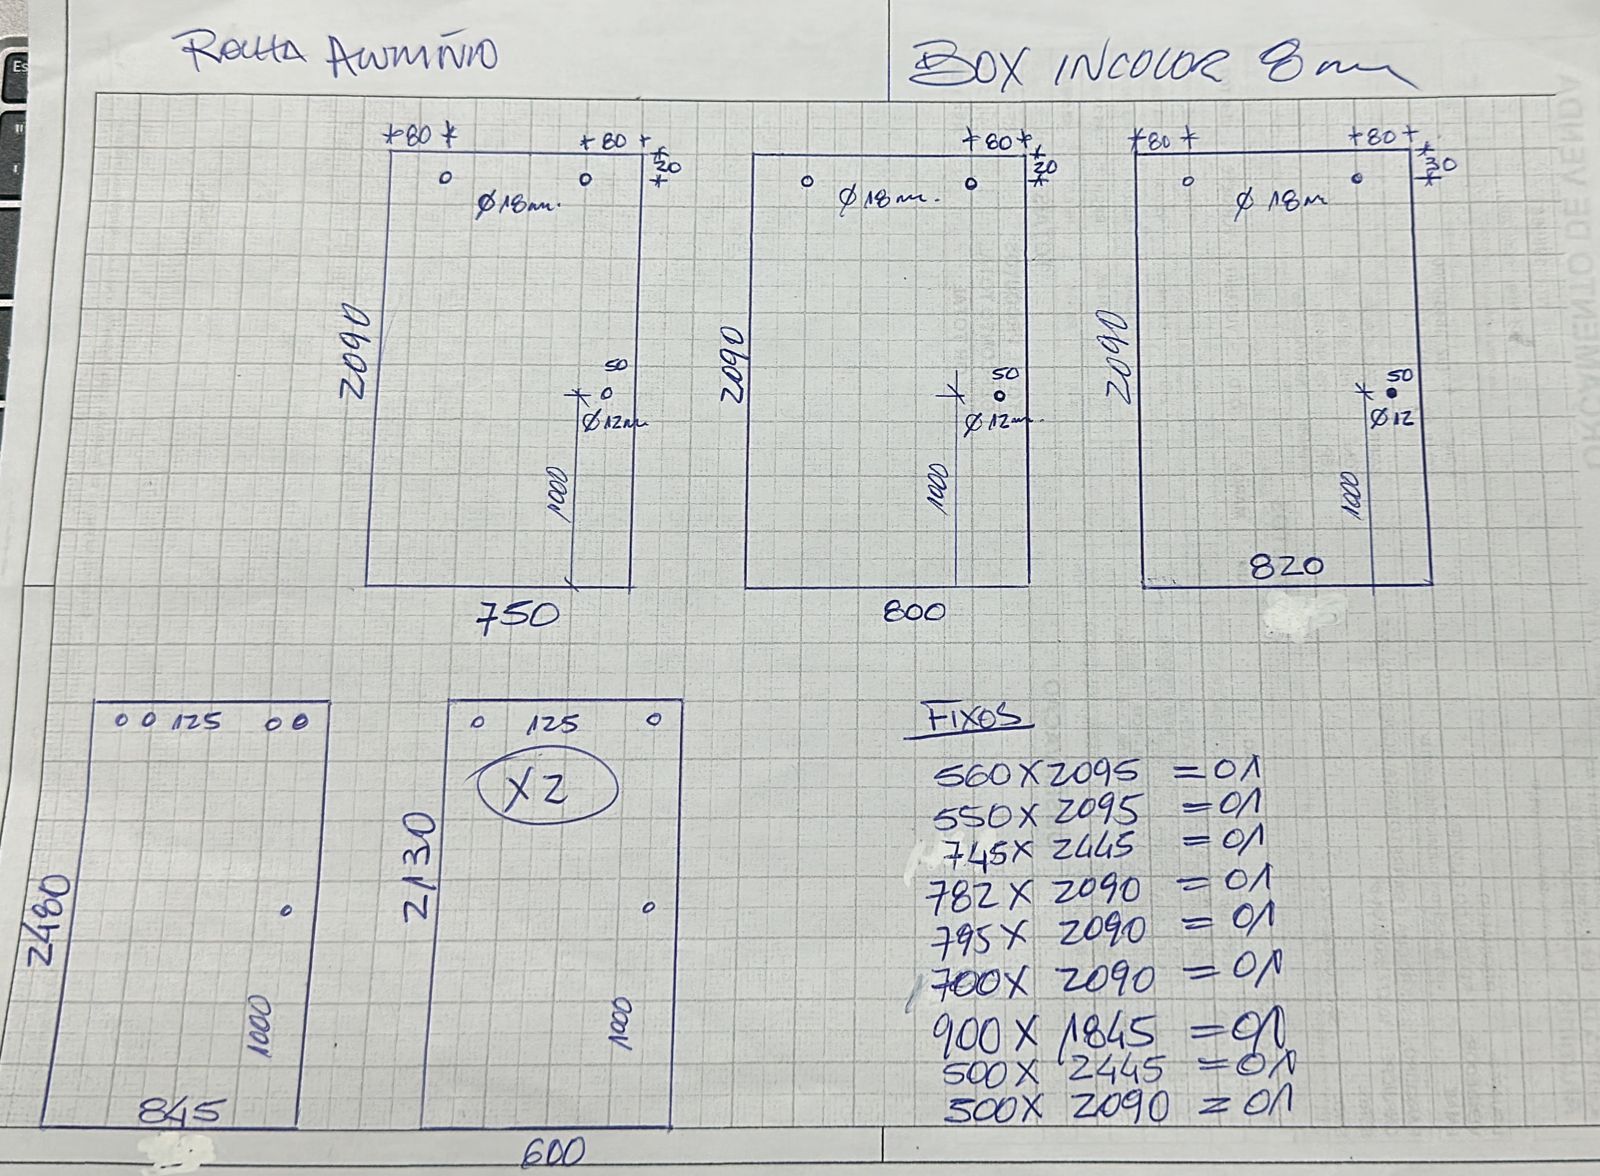 BOX INCOLOR 8mm
80 80
30
Ø18m.
2090
50
Ø12m
1000
750
80
30
Ø18m.
2090
50
Ø12m.
1000
800
80 80
30
Ø 18m
2090
50
Ø12
1000
820
125
2480
1000
845
125
X2
2130
1000
600
FIXOS
560X2095 = 01
550X2095 = 01
745X 2445 = 01
782X 2090 = 01
795X 2090 = 01
700X 2090 = 01
900X 1845 = 01
500X 2445 = 01
500X 2090 = 01